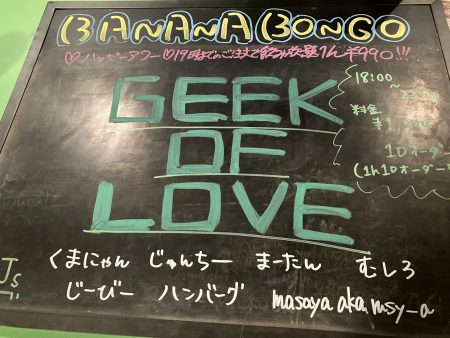 BANANA BONGO
♡ハッピーアワー♡19時までのご注文で飲み放題1h ¥990!!!
GEEK
OF
LOVE
18:00
料金
1Dオーダー
(1h1Dオーダー
くまにゃん じゅんちー まーたん むしろ
じーびー ハンバーグ masaya aka.msy_a